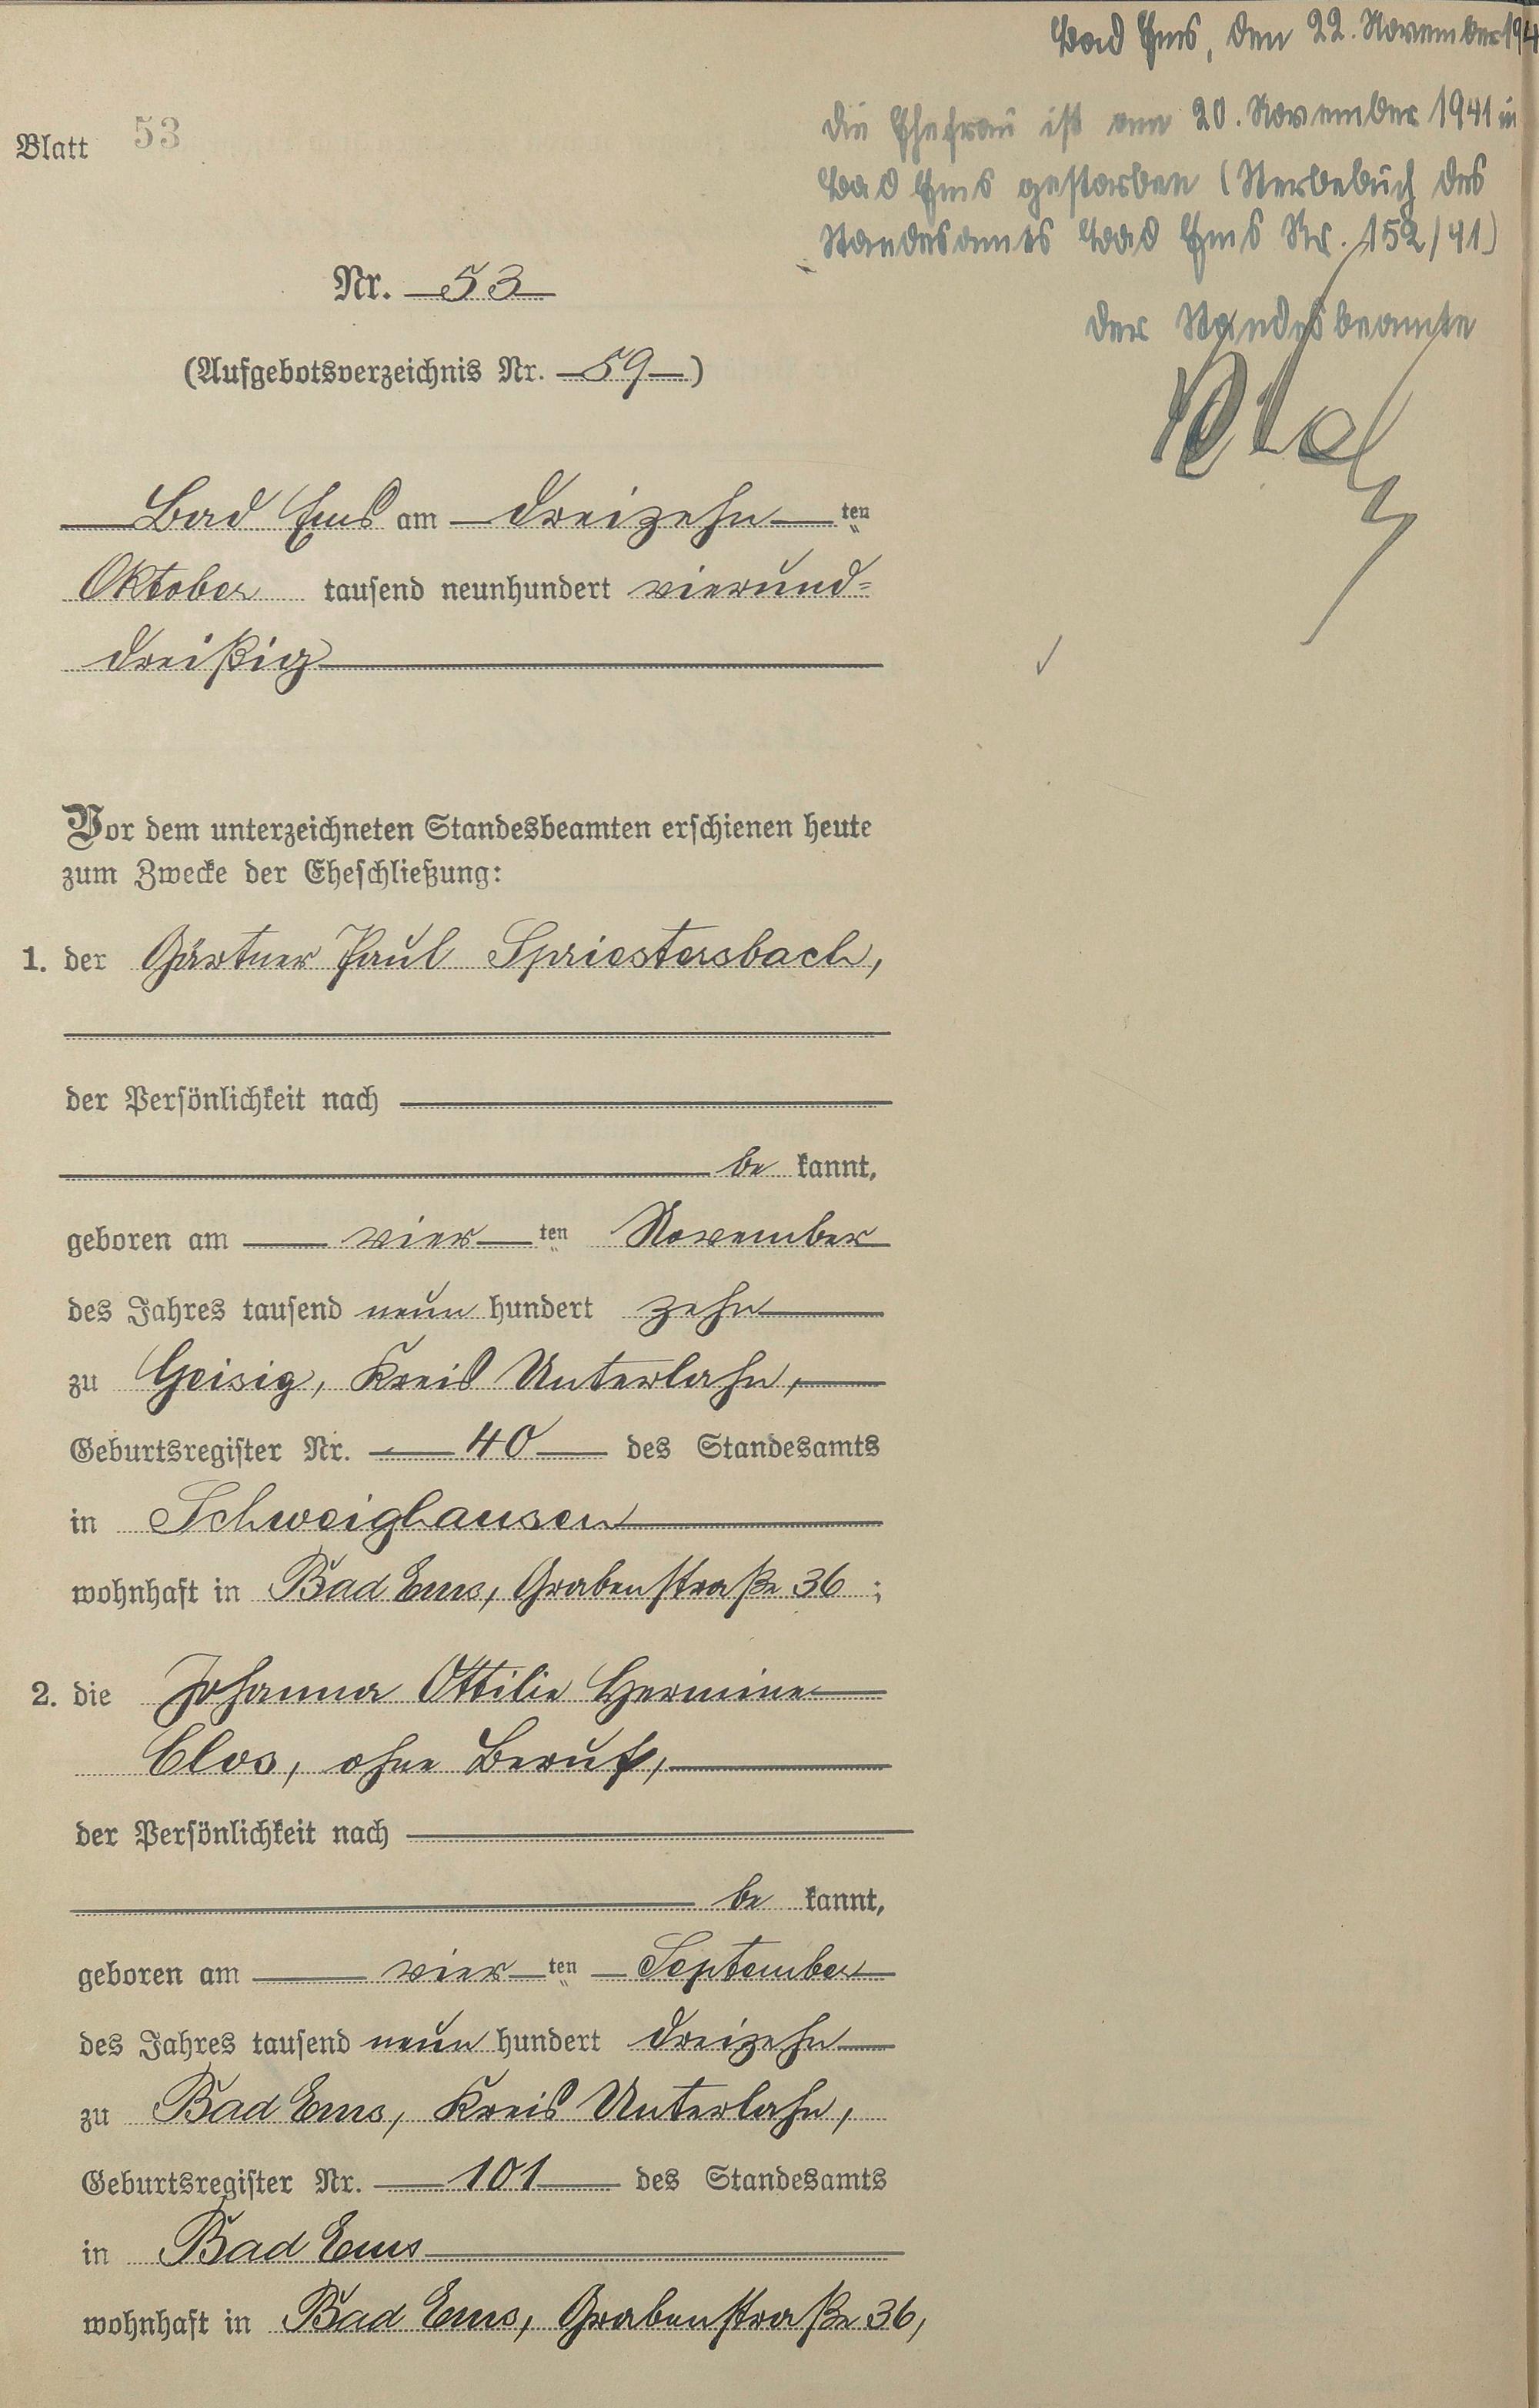 Bad Ems, den 22. November 194
Die Ehefrau ist am 20. November 1941 in
Bad Ems gestorben (Sterbebuch des
Standesamts Bad Ems Nr. 152/41)
Der Standesbeamte
Blatt 53
Nr. 53
(Aufgebotsverzeichnis Nr. 59)
Bad Ems am dreizehn ten
Oktober tausend neunhundert vierund=
dreißig
Vor dem unterzeichneten Standesbeamten erschienen heute
zum Zwecke der Eheschließung:
1. der Gärtner Paul Spriestersbach,
der Persönlichkeit nach
be kannt,
geboren am vier ten November
des Jahres tausend neun hundert zehn
zu Geisig, Kreis Unterlahn,
Geburtsregister Nr. 40 des Standesamts
in Schweighausen
wohnhaft in Bad Ems, Grabenstraße 36 ;
2. die Johanna Ottilie Hermine
Clos, ohne Beruf,
der Persönlichkeit nach
be kannt,
geboren am vier ten September
des Jahres tausend neun hundert dreizehn
zu Bad Ems, Kreis Unterlahn,
Geburtsregister Nr. 101 des Standesamts
in Bad Ems
wohnhaft in Bad Ems, Grabenstraße 36,